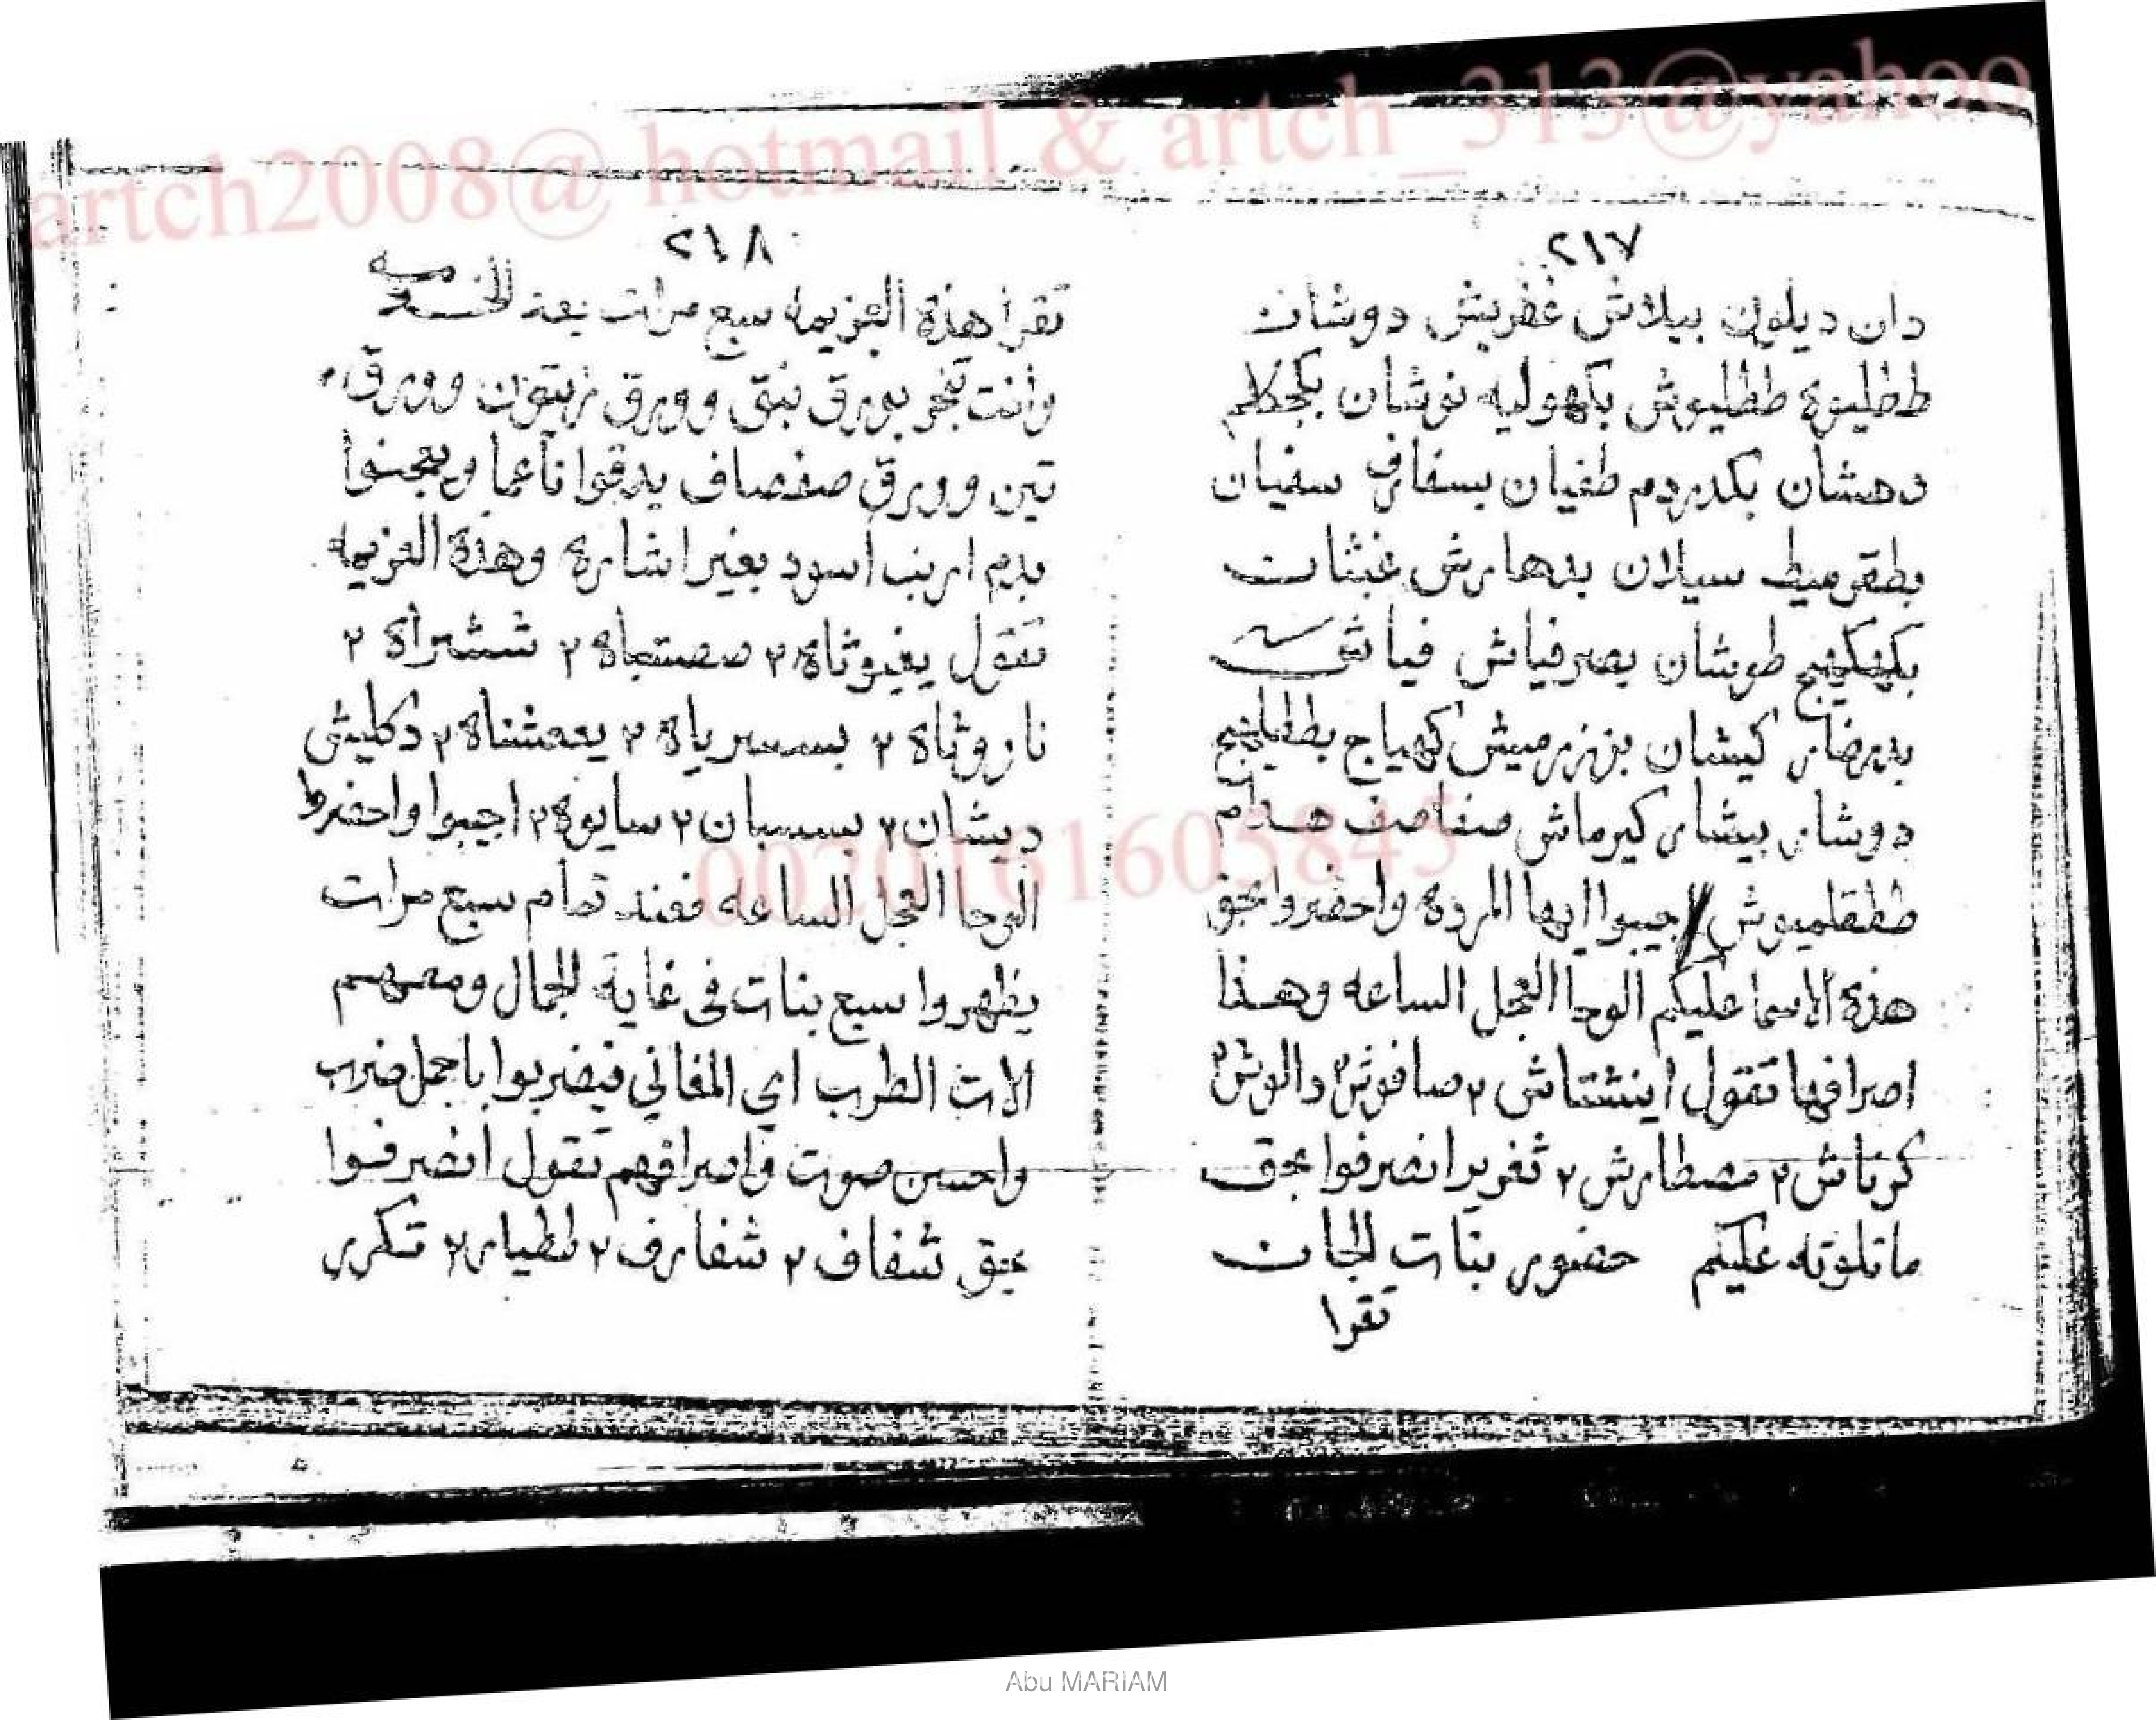 artch2008@ hotmail & artch_313@yahoo
٢١٧
دان ديلون بيلاش غفريش دوشان
طظليوة طظليوش بكهوليه نوشان بكجكلم
دهشان بكدردم طغيان بسفارق سفيان
بطقرميط سيلان بدهارش غبثات
بكهكهيج طوشان بصرفياش فياش
بدرضار كيشان بزنزرميش كهياج بطليليج
دوشار بيشار كيرماش صفاصف هدام
ططقلميوش اجيبوا ايها المرده واحضروا بحق
هذة الاسما عليكم الوحا العجل الساعه وهذا
اصرافها تقول اينشتاش ٢ صافوش ٢ دالوش ٢
كرناش ٢ مصطارش ٢ ثغريرا انصرفوا بحق
ماتلوته عليكم حضور بنات الجان
تقرا
٢١٨
تقرا هذة العزيمه سبع مرات بعد
وانت تبخر بورق نبق وورق زيتون وورق
تين وورق صفصاف يدقوا ناعما ويعجنوا
بدم ارنب اسود بغير اشارة وهذة العزيمه
تقول يغيوثاة ٢ صصتباة ٢ ششراة ٢
ناروثاة ٢ بسسرياة ٢ يعصشناة ٢ دكليش
ديشان ٢ بسسبان ٢ سايوة ٢ اجيبوا واحضروا
الوحا العجل الساعه فعند تمام سبع مرات
يظهروا سبع بنات فى غاية الجمال ومعهم
الات الطرب اي المغاني فيضربوا باجمل ضرب
واحسن صوت واصرافهم تقول انصرفوا
بحق شفاف ٢ شفارف ٢ لطيار ٢ تكرر
0020161605845
Abu MARIAM